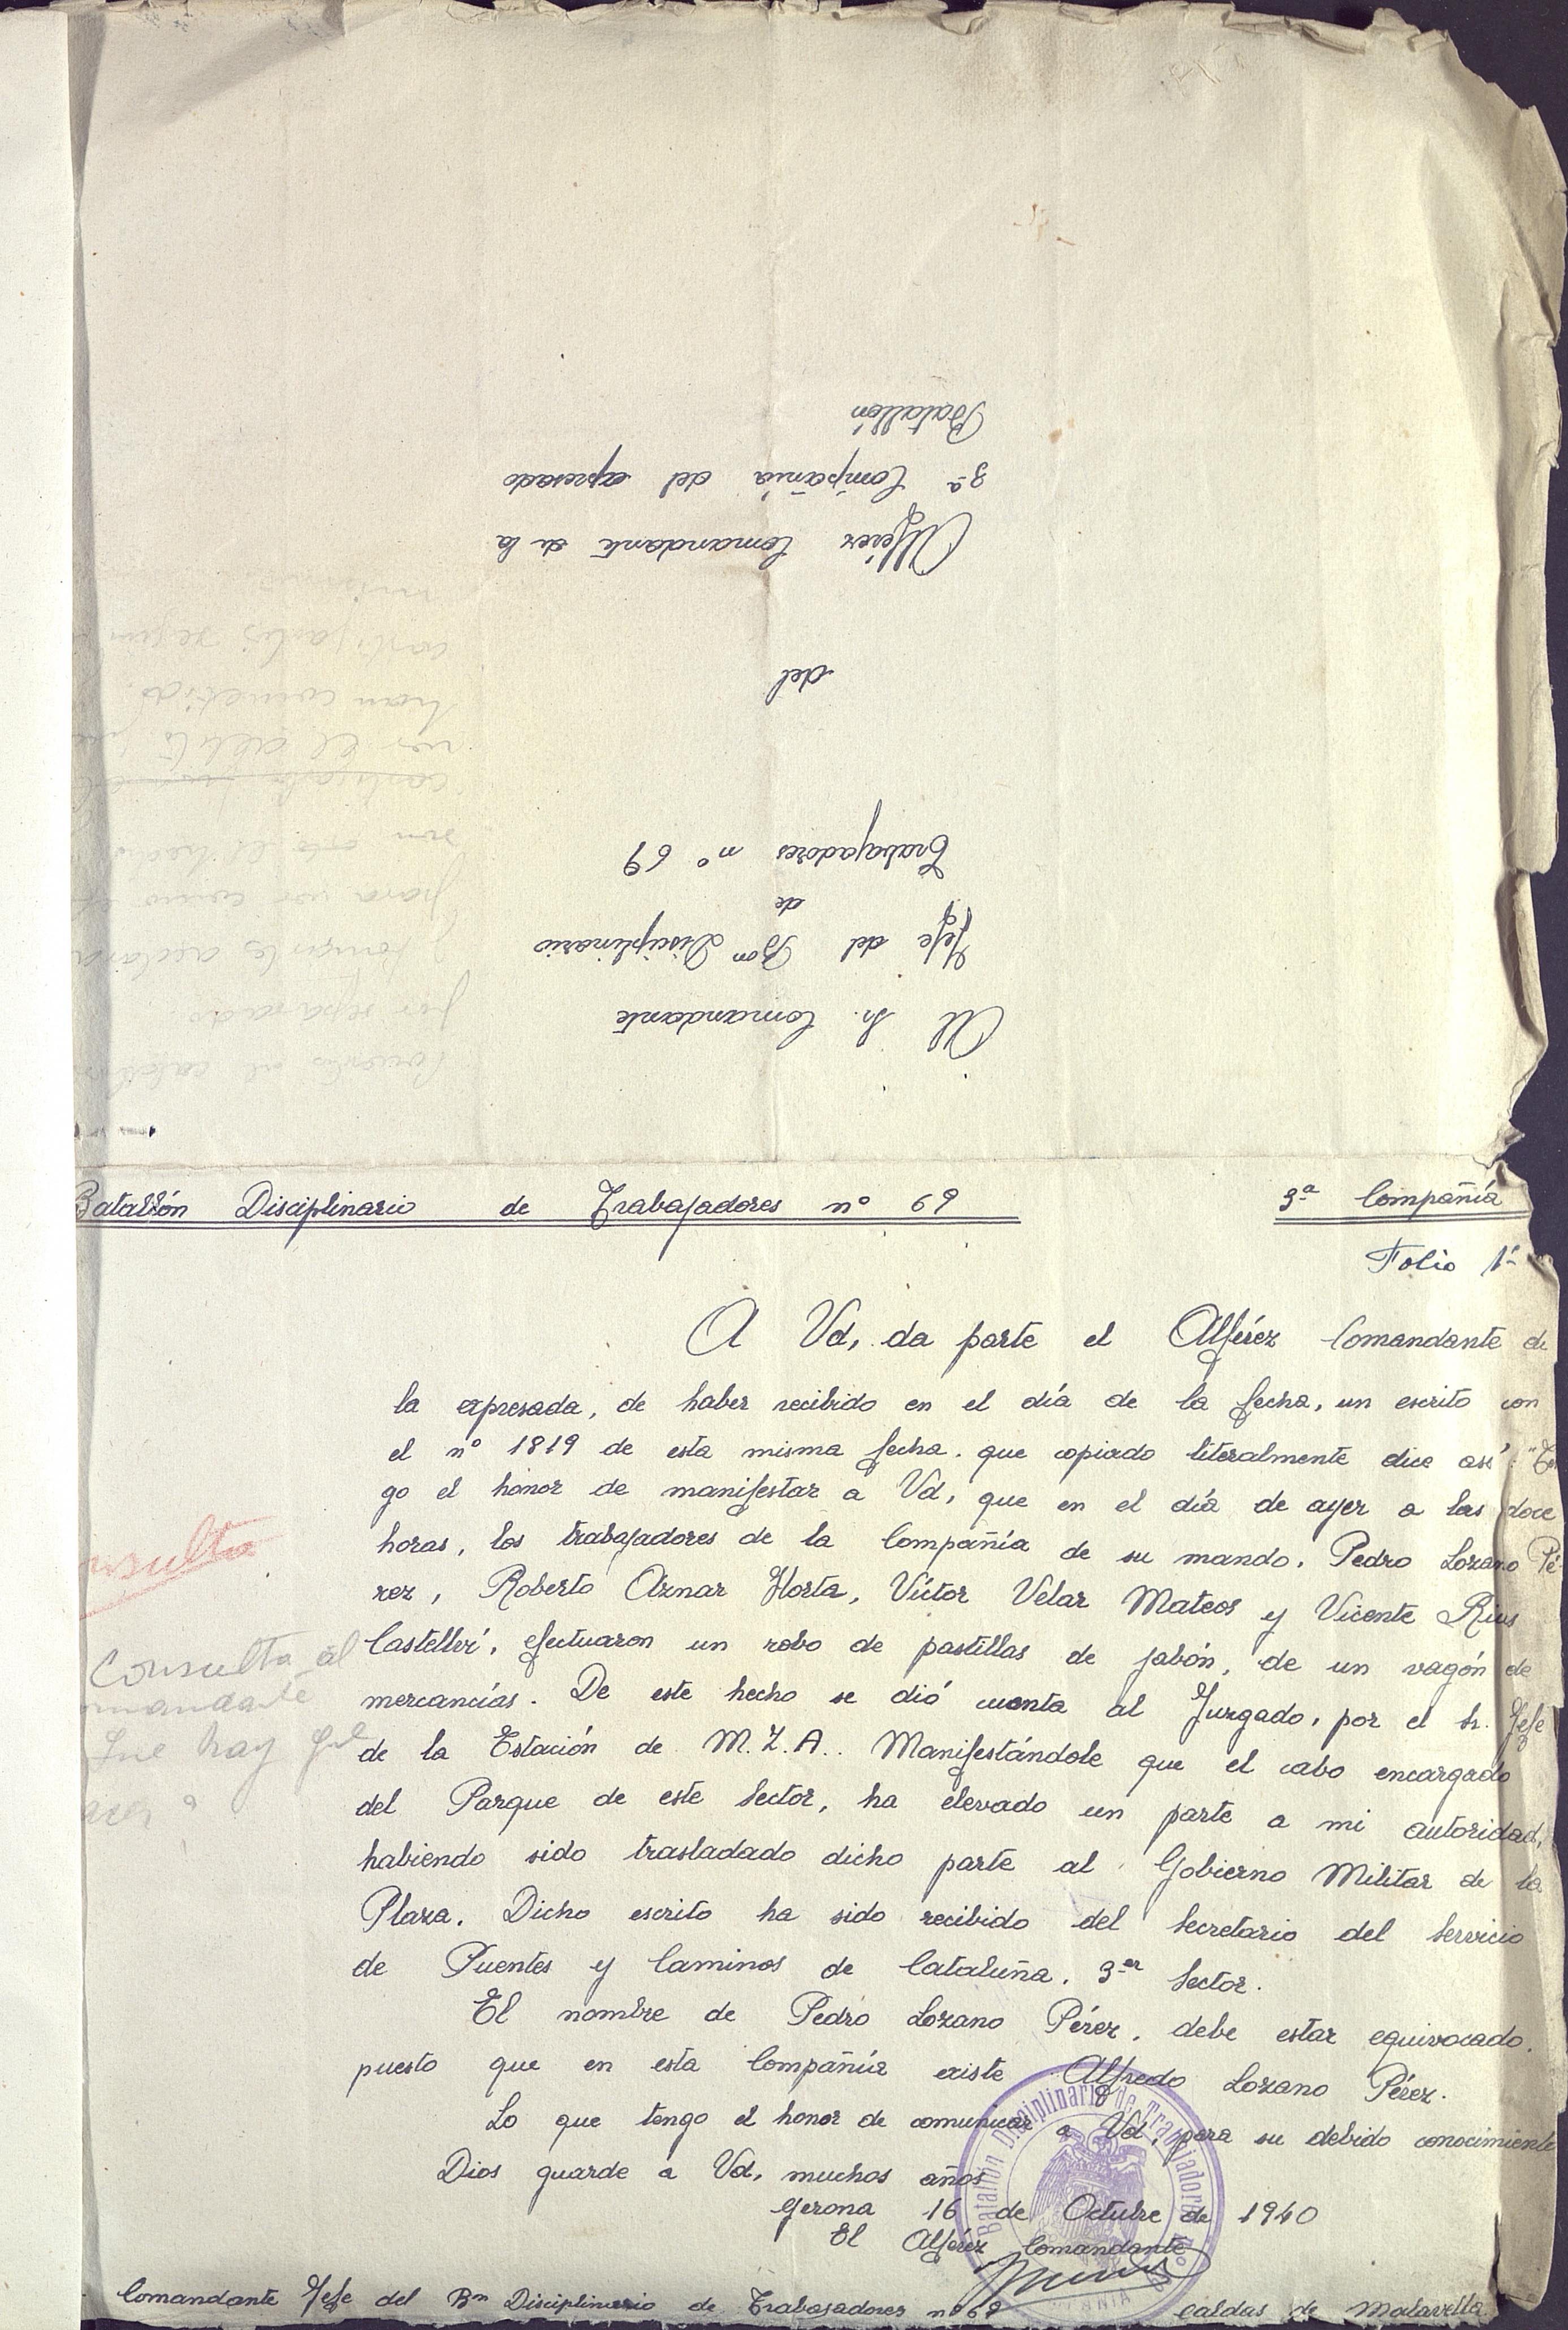 Al Sr. Comandante
Jefe del Bon Disciplinario
de
Trabajadores nº 69
del
Alférez Comandante de la
3ª Compañía del expresado
Batallón
por separado
han cometido
Batallón Disciplinario de Trabajadores nº 69 3ª Compañía
Folio 1º
A Vd, da parte el Alférez Comandante de
la expresada, de haber recibido en el día de la fecha, un escrito con
el nº 1819 de esta misma fecha. que copiado literalmente dice así "Ten
go el honor de manifestar a Vd, que en el día de ayer a las doce
horas, los trabajadores de la Compañía de su mando, Pedro Lozano Pé-
rez, Roberto Aznar Horta, Víctor Velar Mateos y Vicente Rius
Castellví, efectuaron un robo de pastillas de jabón, de un vagón de
mercancías. De este hecho se dió cuenta al Juzgado, por el Sr. Jefe
de la Estación de M.Z.A.. Manifestándole que el cabo encargado
del Parque de este Sector, ha elevado un parte a mi autoridad,
habiendo sido trasladado dicho parte al Gobierno Militar de la
Plaza. Dicho escrito ha sido recibido del Secretario del Servicio
de Puentes y Caminos de Cataluña. 3er Sector.
El nombre de Pedro Lozano Pérez, debe estar equivocado.
puesto que en esta Compañía existe Alfredo Lozano Pérez.
Lo que tengo el honor de comunicar a Vd, para su debido conocimiento
Dios guarde a Vd, muchos años
Gerona 16 de Octubre de 1940
El Alférez Comandante
Comandante Jefe del Bon Disciplinario de Trabajadores nº 69 Caldas de Malavella.
nsulta
Consulta al
omandante
que hay que
Batallón Disciplinario de Trabajadores